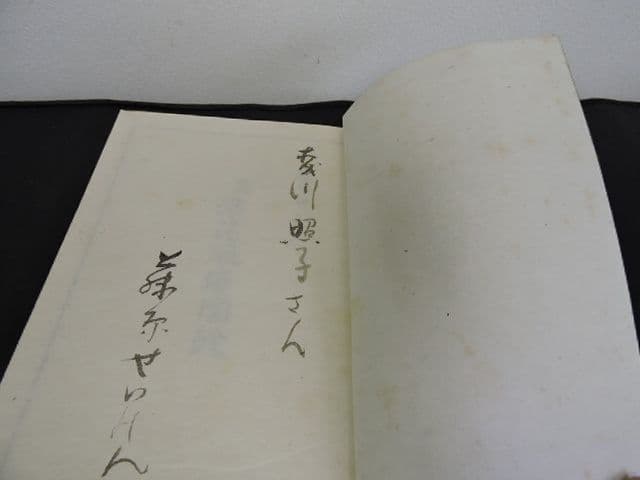 川照子さん
藤原せいけん